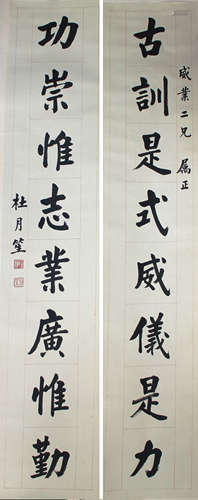 古訓是式威儀是力
威業二兄 屬正
功崇惟志業廣惟勤
杜月笙